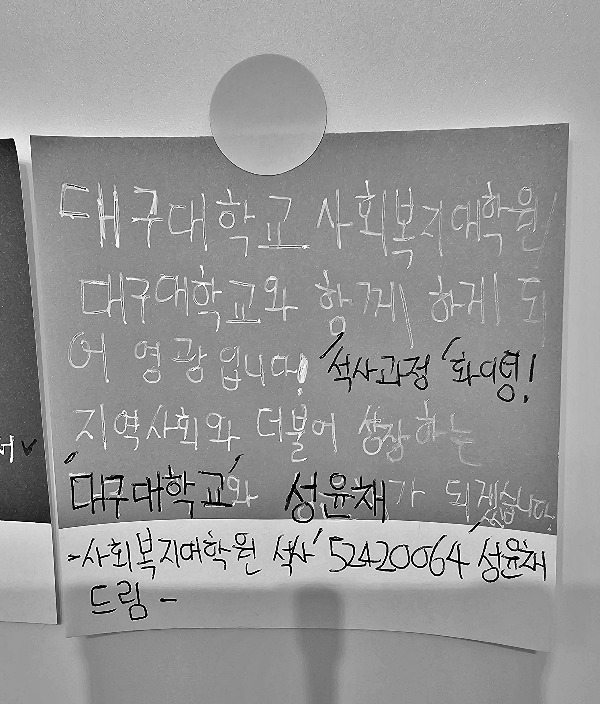 대구대학교 사회복지대학원
대구대학교와 함께 하게 되
어 영광입니다! '석사과정' 화이팅!
지역사회와 더불어 성장하는
'대구대학교'와 성윤채가 되겠습니다.
-사회복지대학원 석사 52420064 성윤채
드림-
어